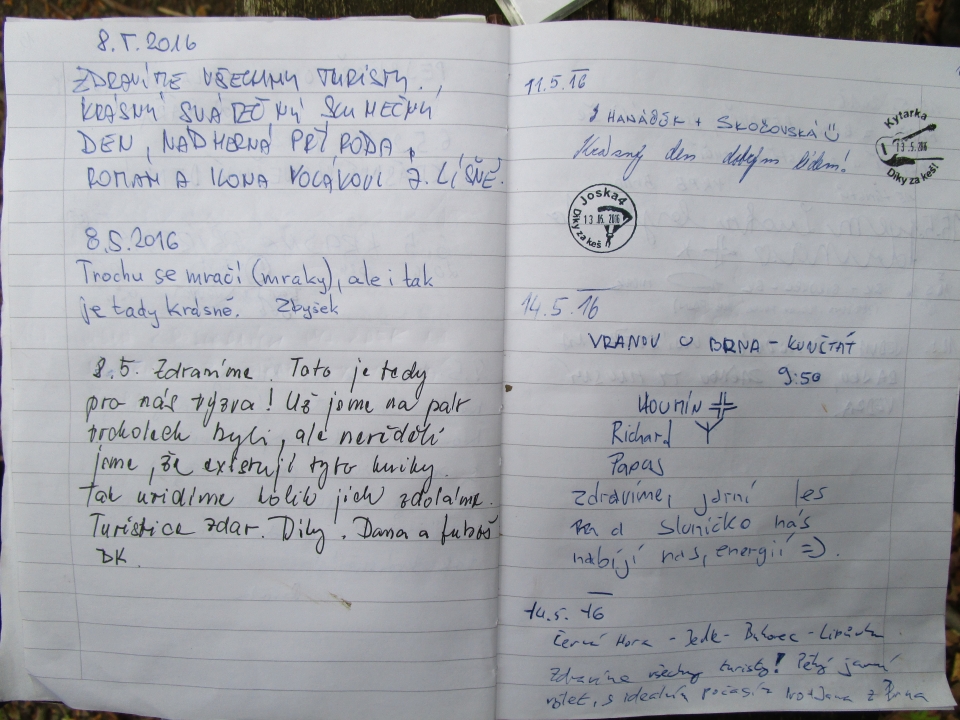 8.5.2016
ZDRAVÍME VŠECHNY TURISTY.,
KRÁSNÝ SVÁTEČNÝ SLUNEČNÝ
DEN, NÁDHERNÁ PŘÍRODA,
ROMAN A ILONA Z LÍŠNĚ.
8.5.2016
Trochu se mračí (mraky), ale i tak
je tady krásně. Zbyšek
8.5. Zdravíme. Toto je tedy
pro nás výzva! Už jsme na pár
vrcholech byli, ale nevěděli
jsme, že existují tyto knihy.
Tak uvidíme kolik jich zdoláme.
Turistice zdar. Díky. Dana a Luboš
BK.
11.5.16
HANÁČEK + SKOŽOVSKÁ
Krásný den dobrým lidem!
Kytarka
13.5.2016
Díky za keš!
Joska4
13.05.2016
Díky za keš!
14.5.16
VRANOV U BRNA - KUNŠTÁT
9:50
HOUMÍN
Richard
Papas
zdravíme, jarní les
a sluníčko nás
nabíjí nas, energií =).
14.5.16
Černá Hora - - Bukovec - Lipůvka
Zdravíme všechny turisty! Pěkný jarní
výlet, s ideálním počasím z Brna